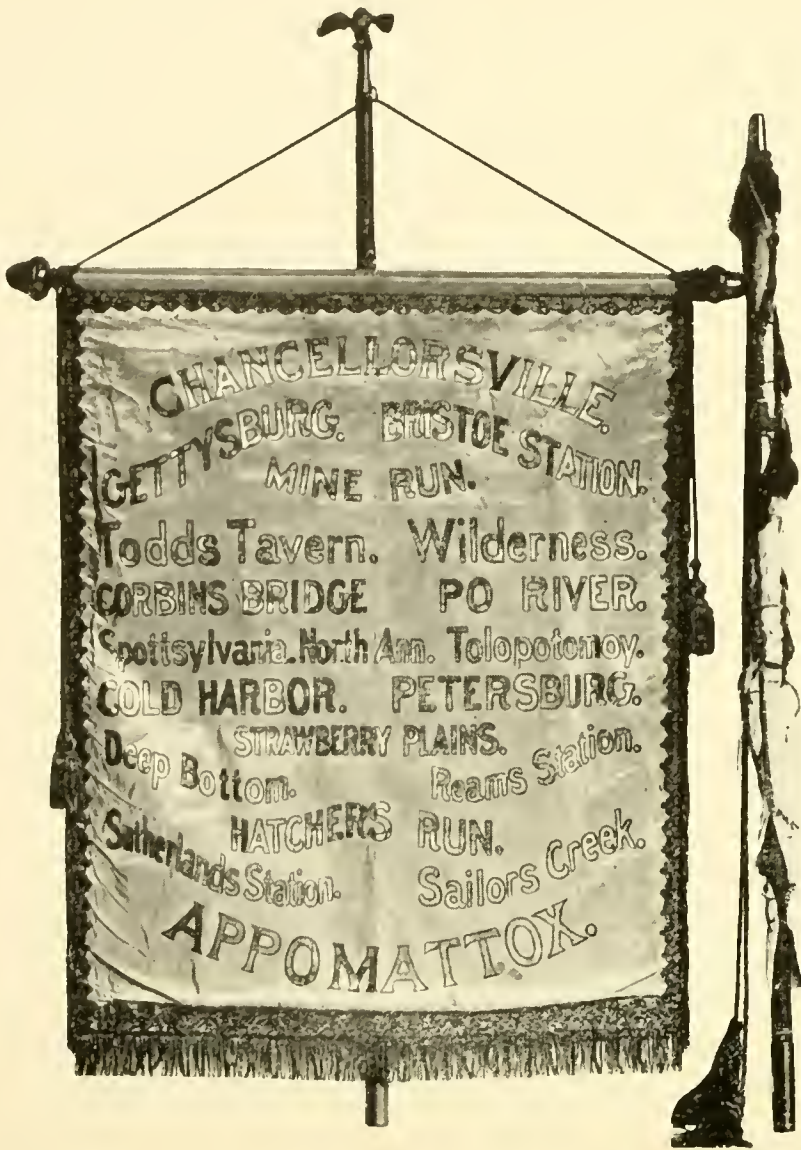 CHANCELLORSVILLE.
GETTYSBURG. BRISTOE STATION.
MINE RUN.
Todds Tavern. Wilderness.
CORBINS BRIDGE PO RIVER.
Spottsylvania. North Ann. Tolopotomoy.
COLD HARBOR. PETERSBURG.
STRAWBERRY PLAINS.
Deep Bottom. Reams Station.
HATCHERS RUN.
Sutherlands Station. Sailors Creek.
APPOMATTOX.